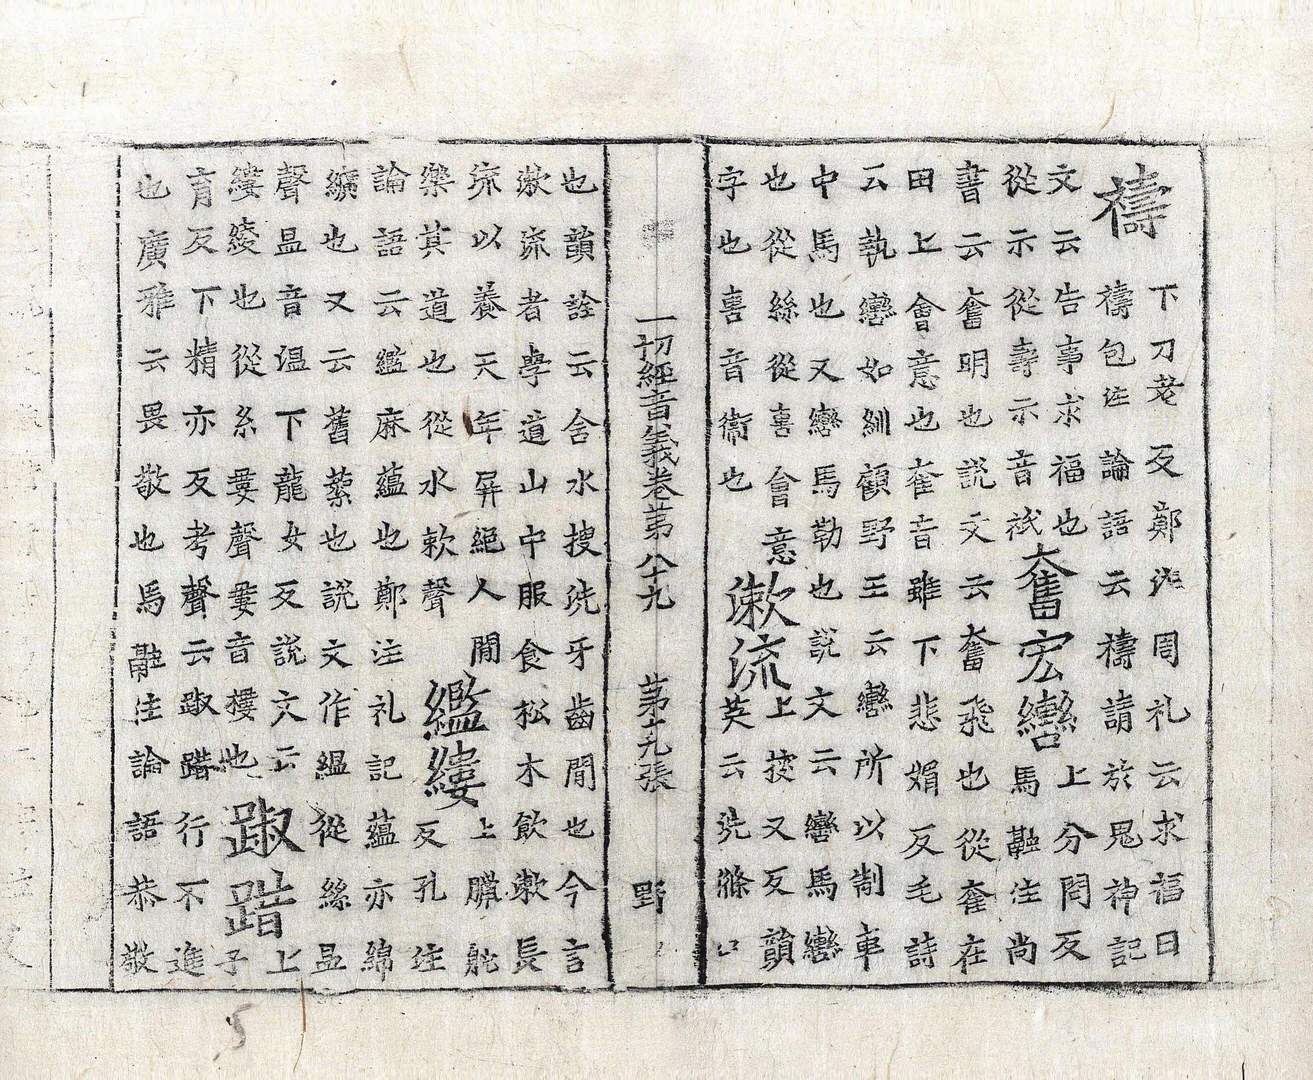 禱
下刀老反鄭注周礼云求福曰
禱包注論語云禱請於鬼神記
文云告事求福也
從示從壽示音祇
奮宏轡
上分問反
馬融注尚
書云奮明也説文云奮飛也從奞在
田上會意也奞音雖下悲媚反毛詩
云執轡如紃顧野王云轡所以制車
中馬也又轡馬勒也説文云轡馬轡
也從絲從軎會意
字也軎音衞也
漱流
上搜又反韻
英云洗滌口
一切經音義卷第八十九 第十九張 野
也韻詮云含水搜洗牙齒間也今言
漱流者學道山中服食松木飲漱長
流以養天年屏絕人間
樂其道也從水欶聲
繿縷
上
反孔注
論語云繿麻蘊也鄭注礼記蘊亦綿
纊也又云舊絮也説文作緼從絲昷
聲昷音温下龍女反説文云
縷綫也從糸婁聲婁音樓也
踧踖
上
子
育反下精亦反考聲云踧踖行不進
也廣雅云畏敬也馬融注論語恭敬